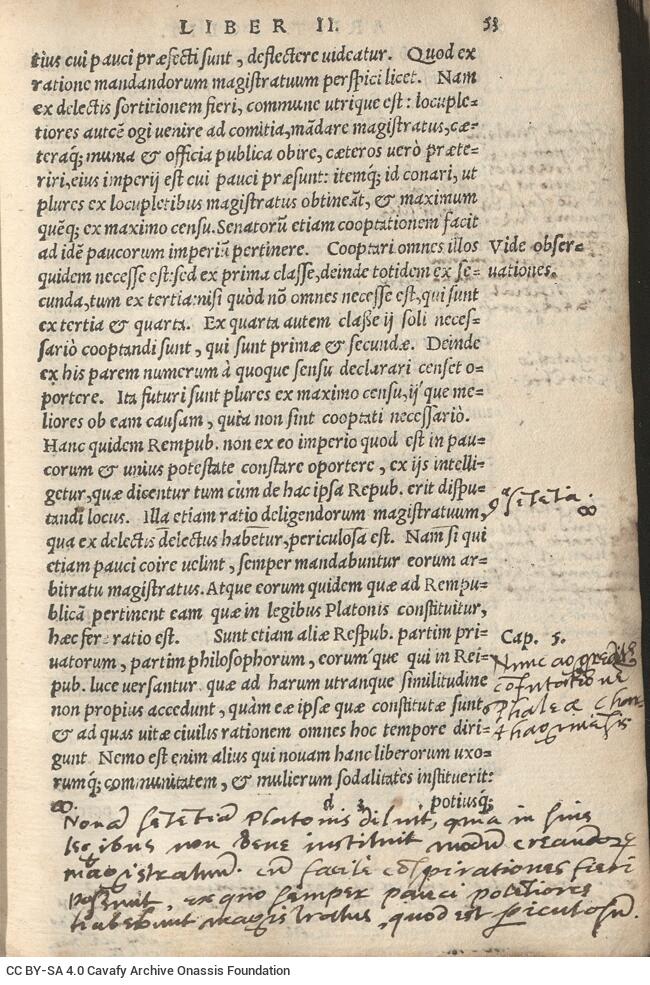 LIBER II. 53
tius cui pauci præfecti sunt, deflectere uideatur. Quod ex
ratione mandandorum magistratuum perspici licet. Nam
ex delectis sortitionem fieri, commune utrique est: locuple=
tiores autẽ cogi uenire ad comitia, mãdare magistratus, cæ=
teraq́; munia & officia publica obire, cæteros uerò præte=
riri, eius imperij est cui pauci præsunt: itemq́; id conari, ut
plures ex locupletibus magistratus obtineãt, & maximum
quẽq; ex maximo censu. Senatorũ etiam cooptationem facit
ad idẽ paucorum imperiũ pertinere. Cooptari omnes illos
Vide obser=
quidem necesse est: sed ex prima classe, deinde totidem ex se=
uationes.
cunda, tum ex tertia: nisi quòd nõ omnes necesse est, qui sunt
ex tertia & quarta. Ex quarta autem classe ij soli neces=
sariò cooptandi sunt, qui sunt primæ & secundæ. Deinde
ex his parem numerum à quoque sensu declarari censet o=
portere. Ita futuri sunt plures ex maximo censu, ij́ que me=
liores ob eam causam, quia non sint cooptati necessariò.
Hanc quidem Rempub. non ex eo imperio quod est in pau=
corum & unius potestate constare oportere, ex ijs intelli=
getur, quæ dicentur tum cùm de hac ipsa Repub. erit dispu=
tandi locus. Illa etiam ratio deligendorum magistratuum,
9ª sētētia.
qua ex delectis delectus habetur, periculosa est. Nam si qui
etiam pauci coire uelint, semper mandabuntur eorum ar=
bitratu magistratus. Atque eorum quidem quæ ad Rempu=
blicã pertinent eam quæ in legibus Platonis constituitur,
hæc ferè ratio est. Sunt etiam aliæ Respub. partim pri=
Cap. 5.
uatorum, partim philosophorum, eoruḿ que qui in Rei=
Nunc aggredit̃
pub. luce uersantur quæ ad harum utranque similitudine
cōfutatiōne
non propius accedunt, quàm eæ ipsæ quæ constitutæ sunt,
Phaleæ Char
& ad quas uitæ ciuilis rationem omnes hoc tempore diri=
thaginēsis
gunt Nemo est enim alius qui nouam hanc liberorum uxo=
rumq́; communitatem, & mulierum sodalitates instituerit:
d 3 potiusq́;
Nonā sētētiā Platonis diluit, quia in suis
legibus non bene instituit modū creandorȝ
magistratuum. cū facile cōspirationes fieri
possint, ex quo semper pauci potētiores
habebunt magistratus, quod est ꝑiculosū.
CC BY-SA 4.0 Cavafy Archive Onassis Foundation